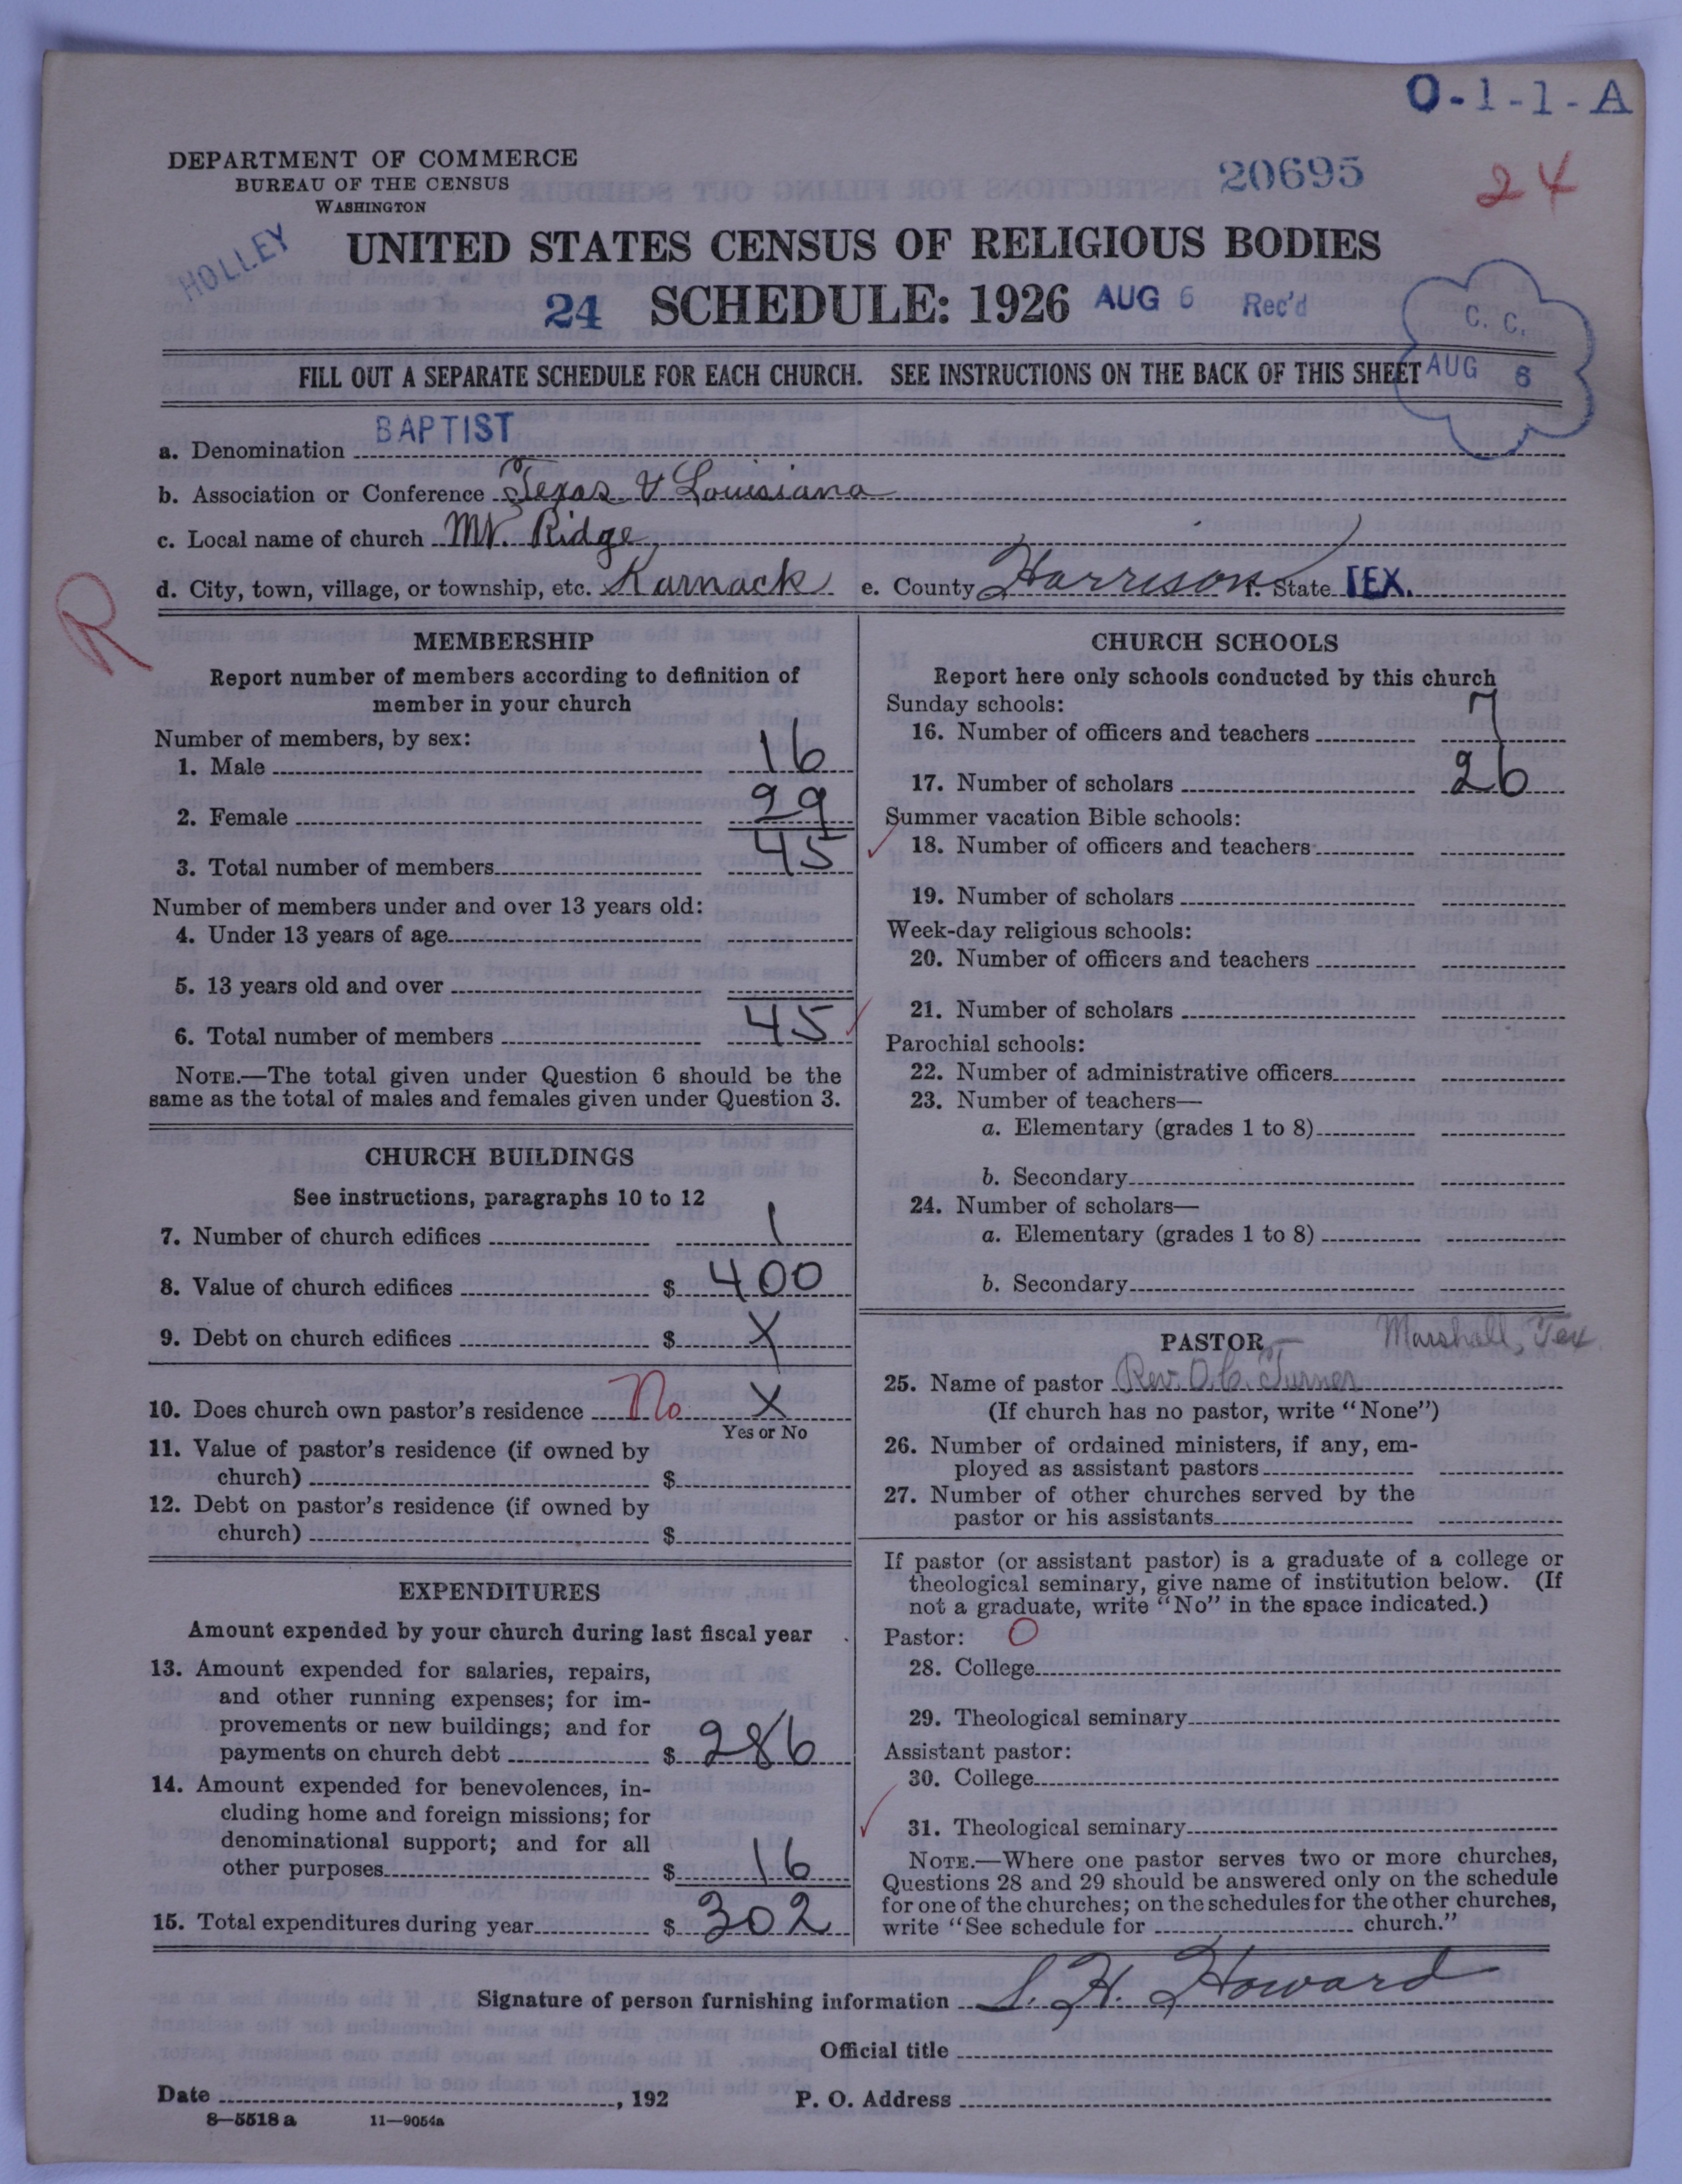 O-1-1-A
DEPARTMENT OF COMMERCE
BUREAU OF THE CENSUS
WASHINGTON
20695
24
HOLLEY
UNITED STATES CENSUS OF RELIGIOUS BODIES
24 SCHEDULE: 1926 AUG 6 Rec'd
C. C.
AUG 6
FILL OUT A SEPARATE SCHEDULE FOR EACH CHURCH. SEE INSTRUCTIONS ON THE BACK OF THIS SHEET
a. Denomination BAPTIST
b. Association or Conference Texas & Louisiana
c. Local name of church Mt. Ridge
d. City, town, village, or township, etc. Karnack e. County Harrison f. State TEX.
R
MEMBERSHIP
Report number of members according to definition of
member in your church
Number of members, by sex:
1. Male 16
2. Female 29
3. Total number of members 45
Number of members under and over 13 years old:
4. Under 13 years of age
5. 13 years old and over
6. Total number of members 45
NOTE.—The total given under Question 6 should be the
same as the total of males and females given under Question 3.
CHURCH BUILDINGS
See instructions, paragraphs 10 to 12
7. Number of church edifices 1
8. Value of church edifices $ 400
9. Debt on church edifices $ X
10. Does church own pastor's residence No X
Yes or No
11. Value of pastor's residence (if owned by
church) $
12. Debt on pastor's residence (if owned by
church) $
EXPENDITURES
Amount expended by your church during last fiscal year
13. Amount expended for salaries, repairs,
and other running expenses; for im-
provements or new buildings; and for
payments on church debt $ 286
14. Amount expended for benevolences, in-
cluding home and foreign missions; for
denominational support; and for all
other purposes $ 16
15. Total expenditures during year $ 302
CHURCH SCHOOLS
Report here only schools conducted by this church
Sunday schools:
16. Number of officers and teachers 7
17. Number of scholars 26
Summer vacation Bible schools:
18. Number of officers and teachers
19. Number of scholars
Week-day religious schools:
20. Number of officers and teachers
21. Number of scholars
Parochial schools:
22. Number of administrative officers
23. Number of teachers—
a. Elementary (grades 1 to 8)
b. Secondary
24. Number of scholars—
a. Elementary (grades 1 to 8)
b. Secondary
PASTOR Marshall, Tex
25. Name of pastor Rev. O. C. Turner
(If church has no pastor, write "None")
26. Number of ordained ministers, if any, em-
ployed as assistant pastors
27. Number of other churches served by the
pastor or his assistants
If pastor (or assistant pastor) is a graduate of a college or
theological seminary, give name of institution below. (If
not a graduate, write "No" in the space indicated.)
Pastor: O
28. College
29. Theological seminary
Assistant pastor:
30. College
31. Theological seminary
NOTE.—Where one pastor serves two or more churches,
Questions 28 and 29 should be answered only on the schedule
for one of the churches; on the schedules for the other churches,
write "See schedule for church."
Signature of person furnishing information S. H. Howard
Official title
Date , 192 P. O. Address
8—5518 a 11—9054a